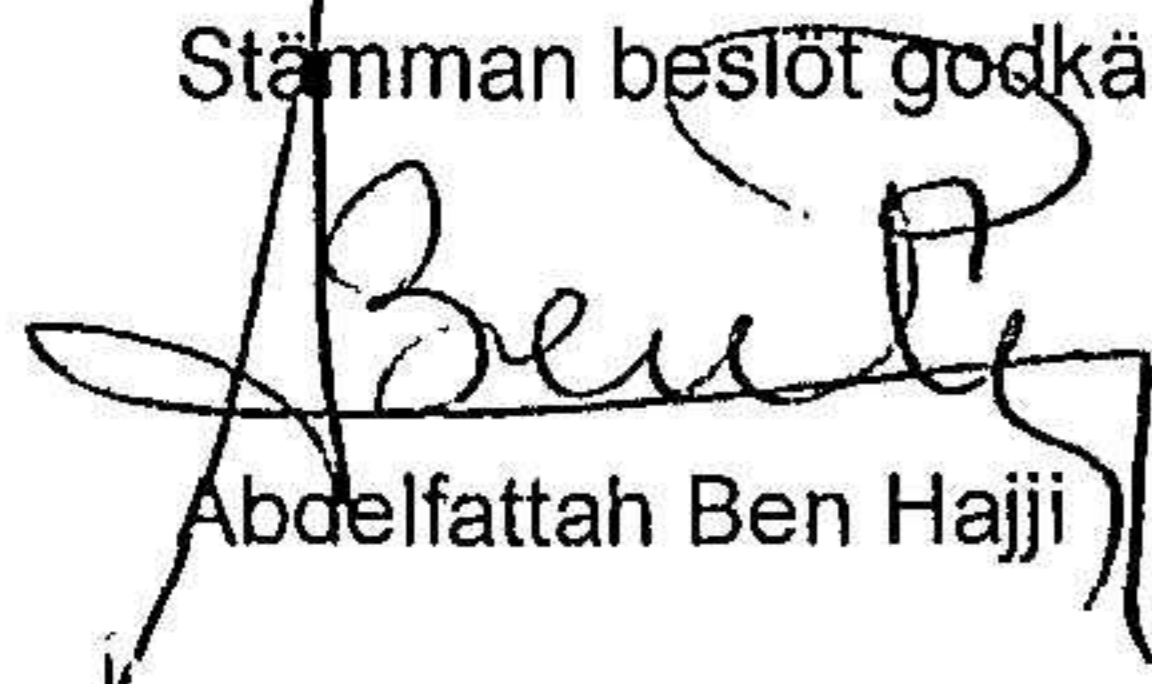 Stämman beslöt godkä
Abdelfattah Ben Hajji